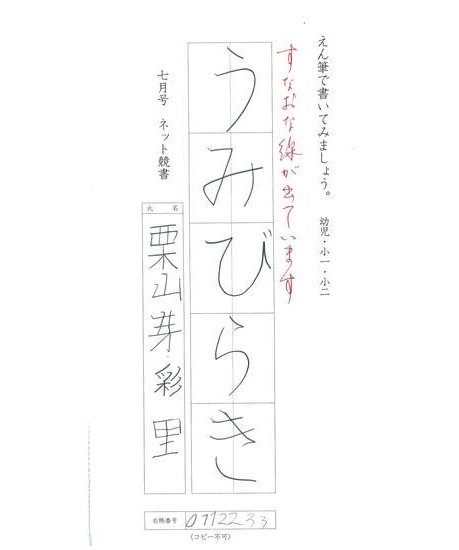 えん筆で書いてみましょう。　幼児・小一・小二
すなおな線が出ています
うみびらき
七月号　ネット競書
氏名
栗山芽彩里
台帳番号 0712233
(コピー不可)